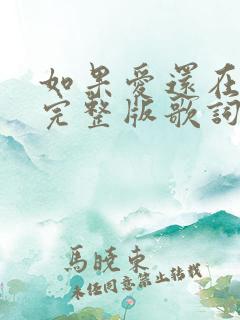 如果愛還在
完整版歌詞
馬曉東
未经同意禁止转载